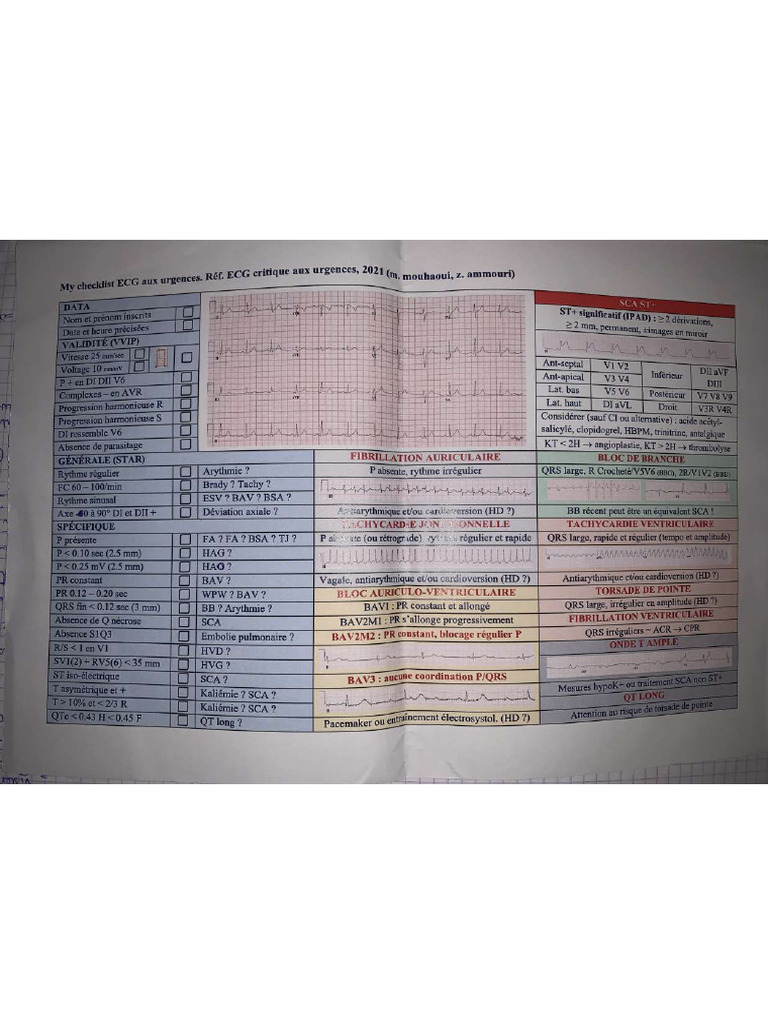 My checklist ECG aux urgences. Réf. ECG critique aux urgences, 2021 (m. mouhaoui, z. ammouri)
DATA
Nom et prénom inscrits
Date et heure précisées
VALIDITÉ (VVIP)
Vitesse 25 mm/sec
Voltage 10 mm/mV
P + en DI DII V6
Complexes – en AVR
Progression harmonieuse R
Progression harmonieuse S
DI ressemble V6
Absence de parasitage
GÉNÉRALE (STAR)
Rythme régulier
Arythmie ?
FC 60 – 100/min
Brady ? Tachy ?
Rythme sinusal
ESV ? BAV ? BSA ?
Axe -60 à 90° DI et DII +
Déviation axiale ?
SPÉCIFIQUE
P présente
FA ? FA ? BSA ? TJ ?
P < 0.10 sec (2.5 mm)
HAG ?
P < 0.25 mV (2.5 mm)
HAO ?
PR constant
BAV ?
PR 0.12 – 0.20 sec
WPW ? BAV ?
QRS fin < 0.12 sec (3 mm)
BB ? Arythmie ?
Absence de Q nécrose
SCA
Absence S1Q3
Embolie pulmonaire ?
R/S < 1 en V1
HVD ?
SV1(2) + RV5(6) < 35 mm
HVG ?
ST iso-électrique
SCA ?
T asymétrique et +
Kaliémie ? SCA ?
T > 10% et < 2/3 R
Kaliémie ? SCA ?
QTc < 0.43 H < 0.45 F
QT long ?
FIBRILLATION AURICULAIRE
P absente, rythme irrégulier
Antiarythmique et/ou cardioversion (HD ?)
TACHYCARDIE JONCTIONNELLE
P absente (ou rétrograde) rythme régulier et rapide
Vagale, antiarythmique et/ou cardioversion (HD ?)
BLOC AURICULO-VENTRICULAIRE
BAV1 : PR constant et allongé
BAV2M1 : PR s'allonge progressivement
BAV2M2 : PR constant, blocage régulier P
BAV3 : aucune coordination P/QRS
Pacemaker ou entraînement électrosystol. (HD ?)
SCA ST+
ST+ significatif (IPAD) : ≥ 2 dérivations,
≥ 2 mm, permanent, ±images en miroir
Ant-septal V1 V2 Inférieur DII aVF
Ant-apical V3 V4 DIII
Lat. bas V5 V6 Postérieur V7 V8 V9
Lat. haut DI aVL Droit V3R V4R
Considérer (sauf CI ou alternative) : acide acétyl-
salicylé, clopidogrel, HBPM, trinitrine, antalgique
KT < 2H → angioplastie, KT > 2H → thrombolyse
BLOC DE BRANCHE
QRS large, R Crocheté/V5V6 (BBG), 2R/V1V2 (BBD)
BB récent peut être un équivalent SCA !
TACHYCARDIE VENTRICULAIRE
QRS large, rapide et régulier (tempo et amplitude)
Antiarythmique et/ou cardioversion (HD ?)
TORSADE DE POINTE
QRS large, irrégulier en amplitude (HD ?)
FIBRILLATION VENTRICULAIRE
QRS irréguliers = ACR → CPR
ONDE T AMPLE
Mesures hypoK+ ou traitement SCA non ST+
QT LONG
Attention au risque de torsade de pointe